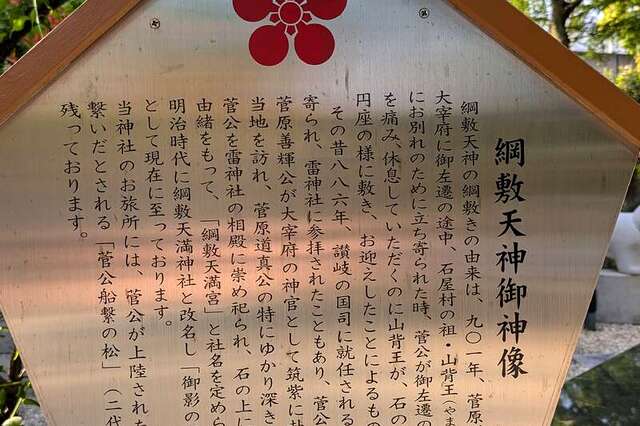 綱敷天神御神像
綱敷天神の綱敷きの由来は、九〇一年、菅原
大宰府に御左遷の途中、石屋村の祖・山背王(やま
にお別れのために立ち寄られた時、菅公が御左遷の
を痛み、休息していただくのに山背王が、石の
円座の様に敷き、お迎えしたことによるもの
その昔八八六年、讃岐の国司に就任される
寄られ、雷神社に参拝されたこともあり、菅公
菅原善輝公が大宰府の神官として筑紫に
当地を訪れ、菅原道真公の特にゆかり深き
菅公を雷神社の相殿に崇め祀られ、石の上に
由緒をもって、「綱敷天満宮」と社名を定めら
明治時代に綱敷天満神社と改名し「御影の
として現在に至っております。
当神社のお旅所には、菅公が上陸された
繋いだとされる「菅公船繋の松」(二代
残っております。